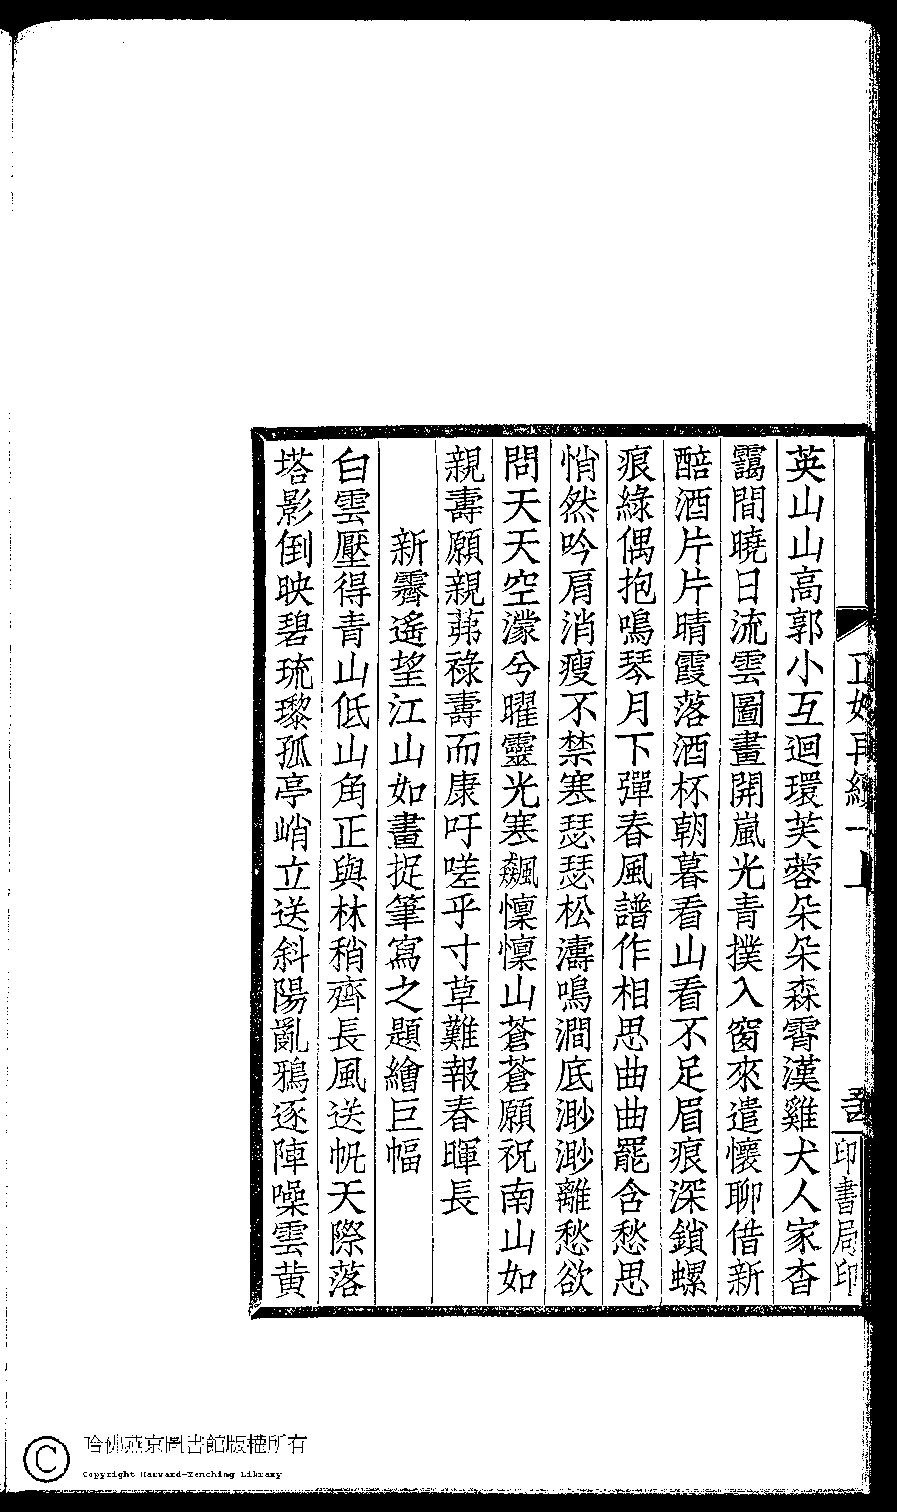 英山山高郭小互迴環芙蓉朵朵森霄漢雞犬人家杳
靄間曉日流雲圖畫開嵐光青撲入窗來遣懷聊借新
醅酒片片晴霞落酒杯朝暮看山看不足眉痕深鎖螺
痕綠偶抱鳴琴月下彈春風譜作相思曲曲罷含愁思
悄然吟肩消瘦不禁寒瑟瑟松濤鳴澗底渺渺離愁欲
問天天空濛兮曜靈光寒飆懍懍山蒼蒼願祝南山如
親壽願親茀祿壽而康吁嗟乎寸草難報春暉長
新霽遙望江山如畫捉筆寫之題繪巨幅
白雲壓得青山低山角正與林稍齊長風送帆天際落
塔影倒映碧琉瓈孤亭峭立送斜陽亂鴉逐陣噪雲黃
印書局印
哈佛燕京圖書館版權所有
Copyright Harvard-Yenching Library